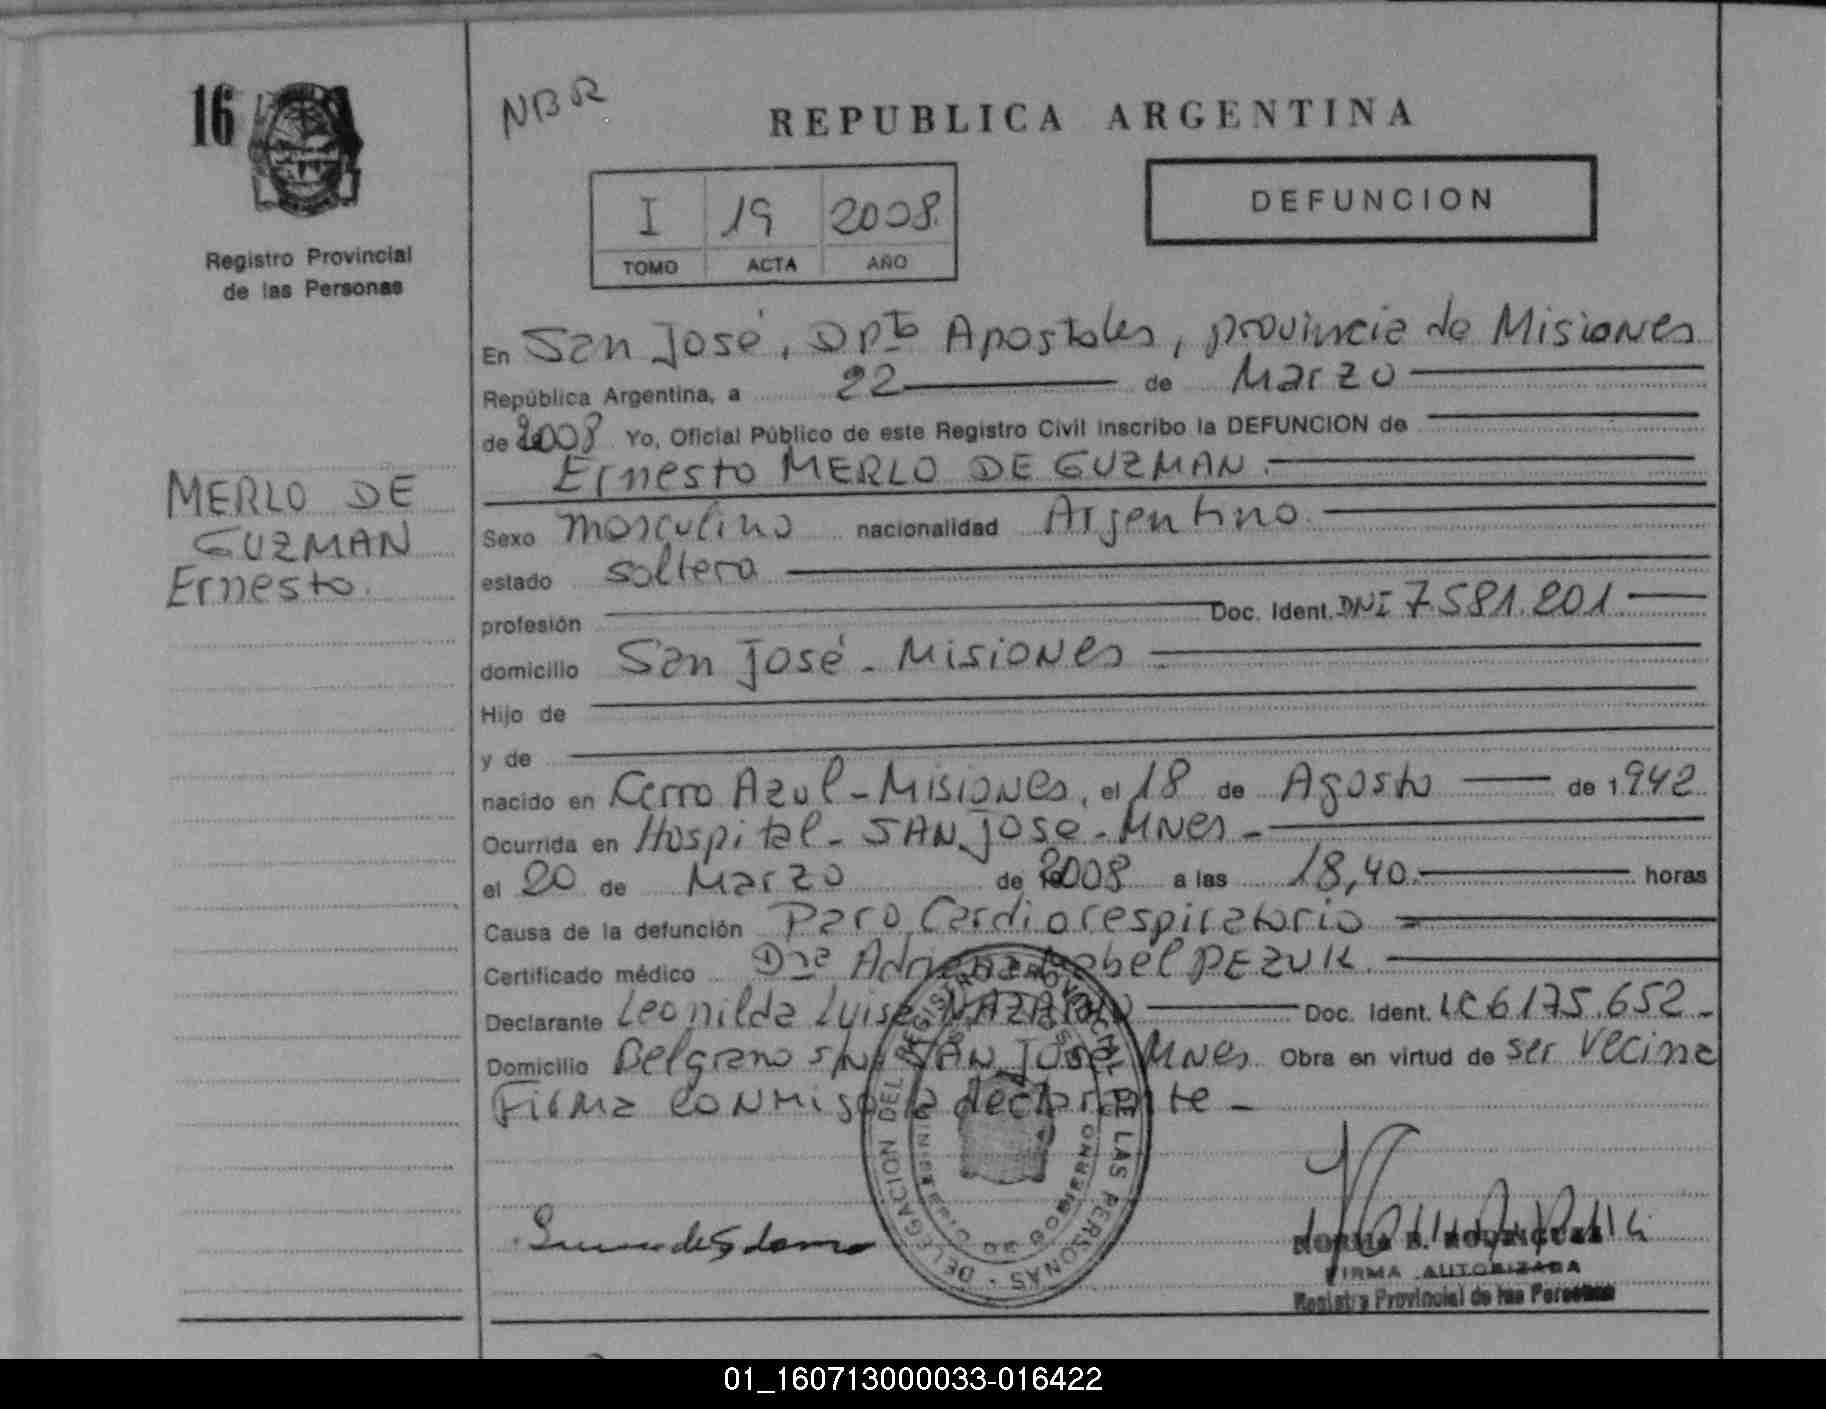 16
Registro Provincial
de las Personas
MERLO DE
GUZMAN
Ernesto.
NBR
REPUBLICA ARGENTINA
I 19 2008.
TOMO ACTA AÑO
DEFUNCION
En San José, Dpto Apostoles, provincia de Misiones
República Argentina, a 22 de Marzo
de 2008 Yo, Oficial Público de este Registro Civil inscribo la DEFUNCION de
Ernesto MERLO DE GUZMAN.
Sexo masculino nacionalidad Argentino.
estado soltero
profesión Doc. Ident. DNI 7.581.201
domicilio San José - Misiones
Hijo de
y de
nacido en Cerro Azul - Misiones, el 18 de Agosto de 1.942
Ocurrida en Hospital - SAN José - MNes -
el 20 de Marzo de 2008 a las 18,40. horas
Causa de la defunción Paro Cardiorespiratorio
Certificado médico Dra Adriana Isabel PEZUK.
Declarante Leonilda Luisa Doc. Ident. LC 6175.652 -
Domicilio Belgrano s/n SAN José MNes Obra en virtud de ser vecina
Firma conmigo la declarante -
DELEGACION DEL REGISTRO PROVINCIAL DE LAS PERSONAS
MINISTERIO DE GOBIERNO
NORMA B. RODRIGUEZ
FIRMA AUTORIZADA
Registro Provincial de las Personas
01_160713000033-016422